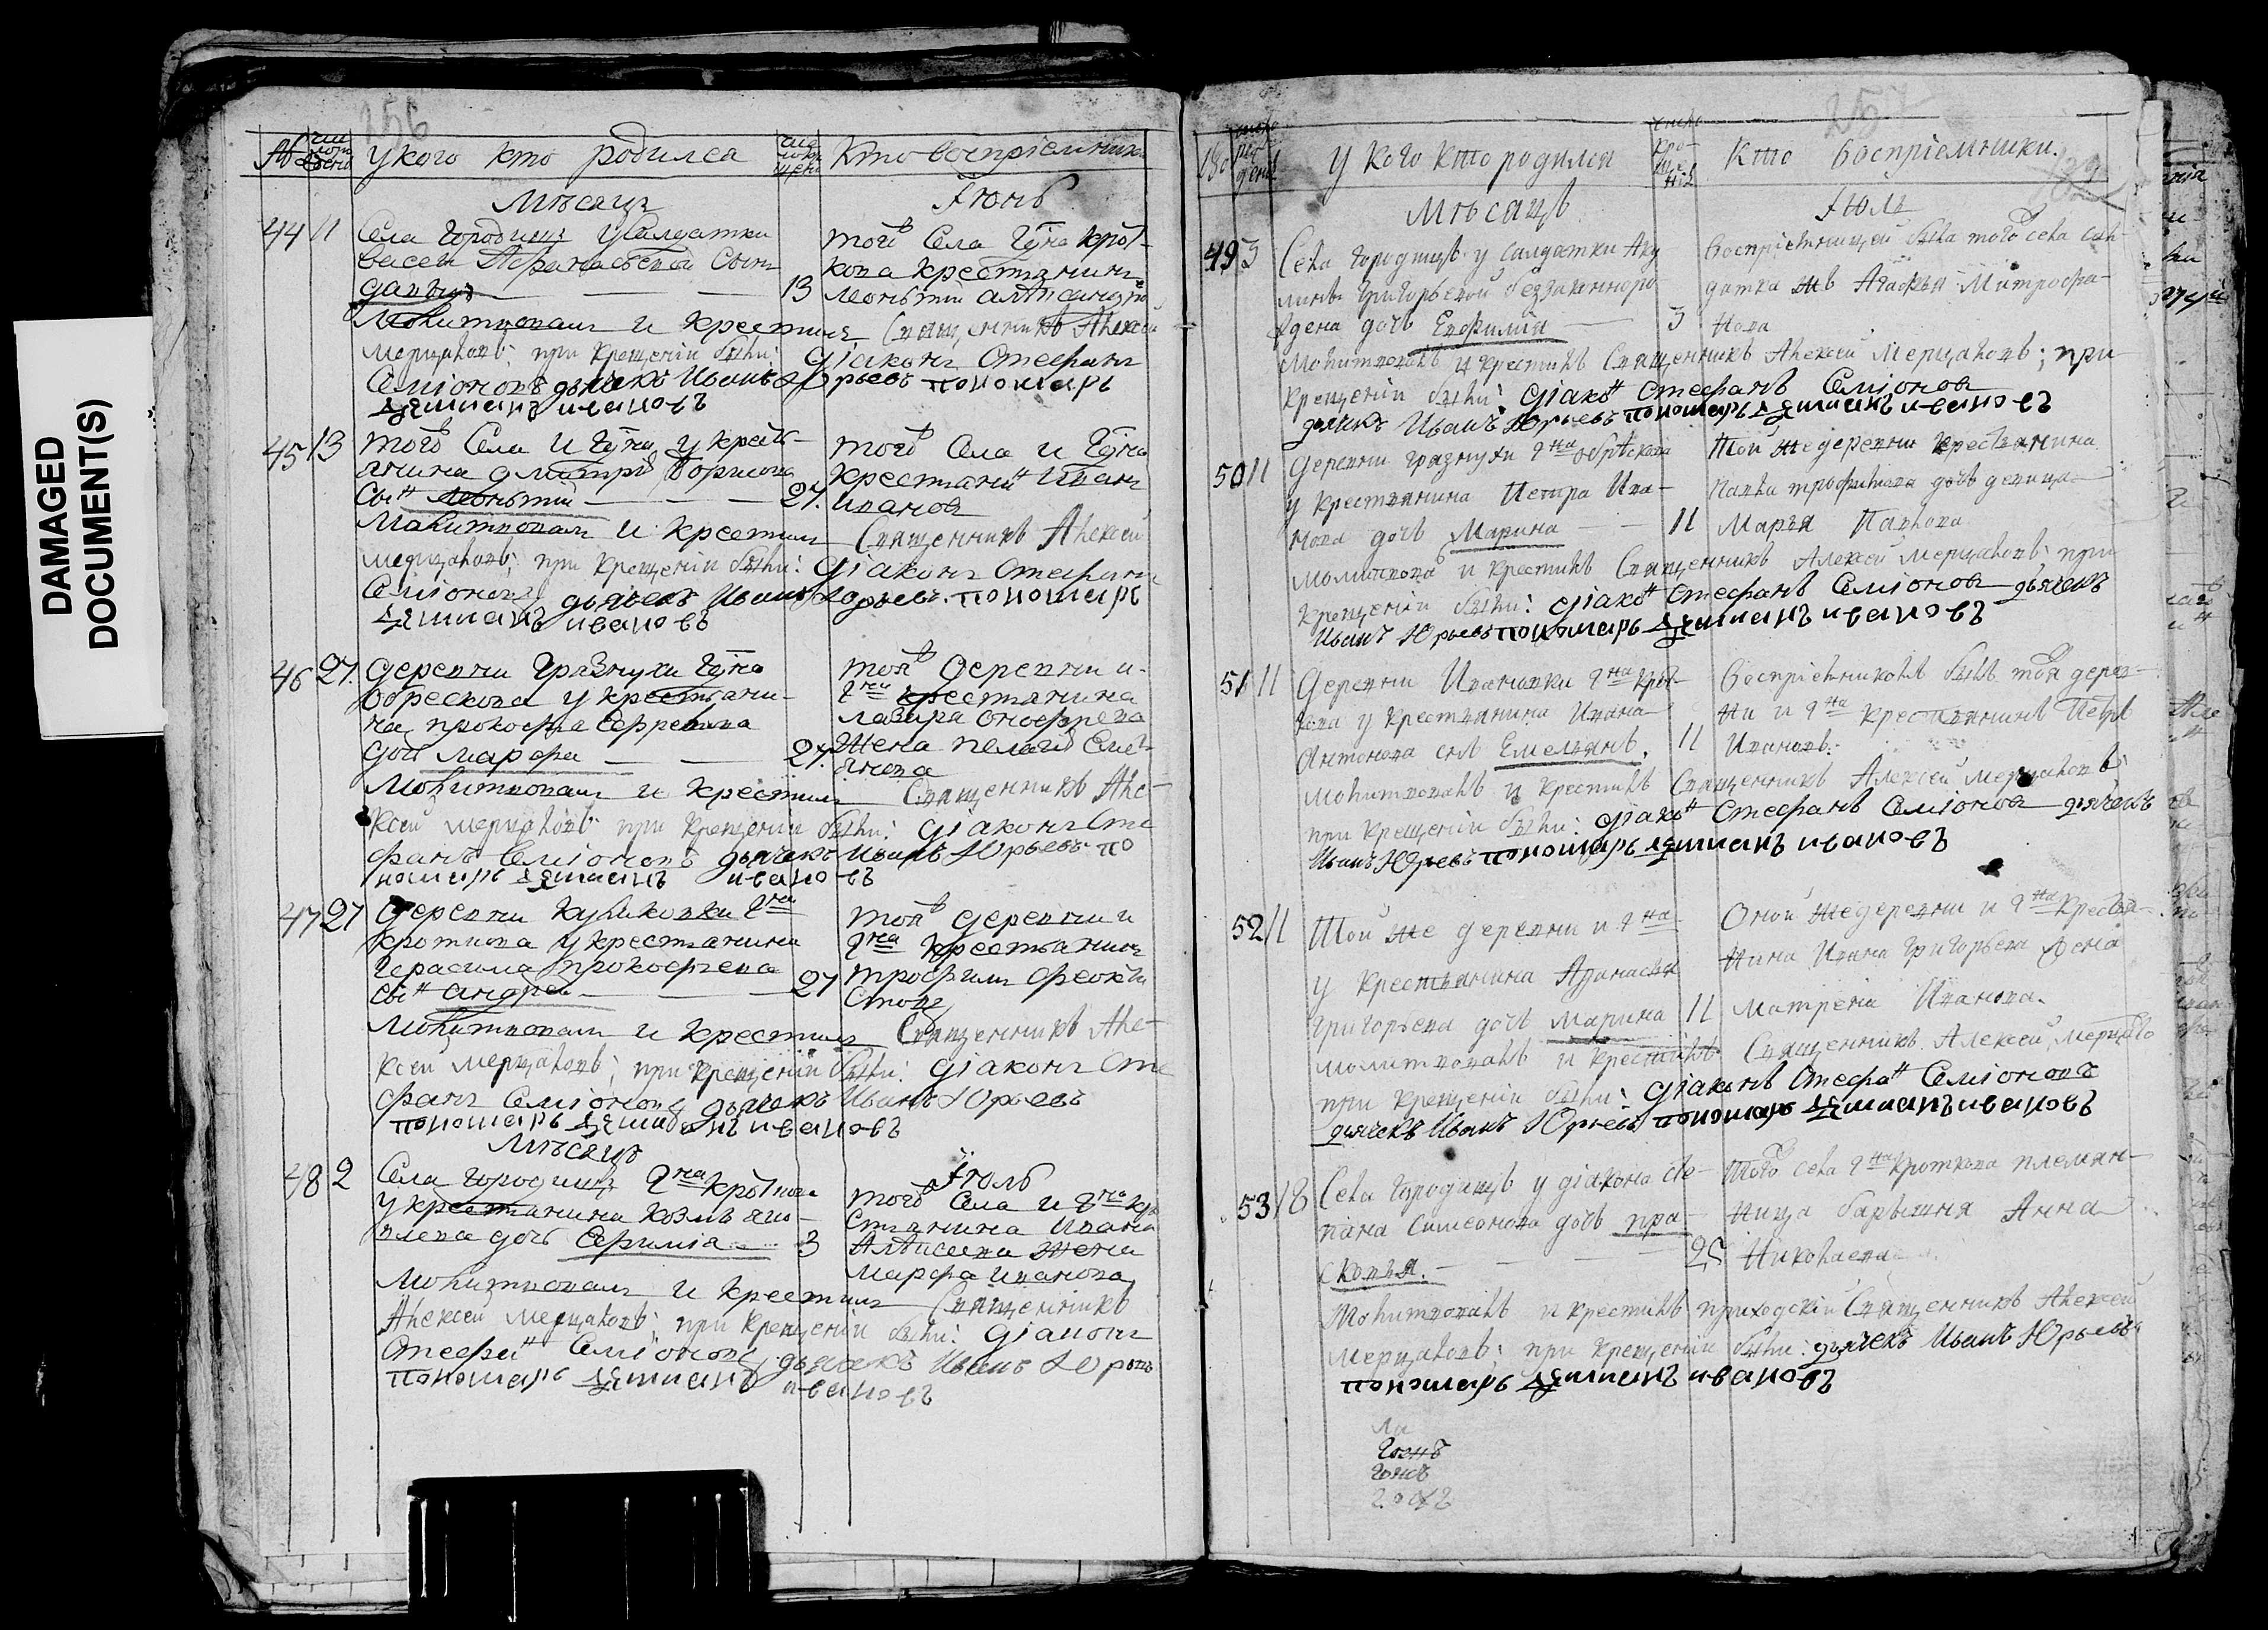 DAMAGED
DOCUMENT(S)
256
№
у кого кто родился
кто воспріемники
Мѣсяцъ
Іюнь
44 11 Села Городищъ у Салдатки
сынъ
13
того села
крестьянинъ
Молитвовалъ и крестилъ Священникъ Алексей
Мерцаловъ; при крещеніи были: Діаконъ Стефанъ
Семіоновъ дьячекъ Иванъ Юрьевъ пономарь
Дѣмианъ Ивановъ
45 13 Того Села и Гдна у кресть-
янина Дмитрія Борисова
сынъ Леонтій 27.
того Села и Гдна
крестьянинъ Иванъ
Ивановъ
Молитвовалъ и крестилъ Священникъ Алексей
Мерцаловъ; при крещеніи были: Діаконъ Стефанъ
Семіоновъ дьячекъ Иванъ Юрьевъ. пономарь
Дѣмианъ Ивановъ
46 27. Деревни Грязнухи Гдна
Обрескова у крестьяни-
на Прокофья
дочь Марфа 27.
той деревни и
Гна крестьянина
Лазаря Онофрева
жена Пелагея
Молитвовалъ и крестилъ Священникъ Але-
ксей Мерцаловъ при крещеніи были: Діаконъ Сте
фанъ Семіоновъ дьячекъ Иванъ Юрьевъ по
номарь Дѣмианъ Ивановъ
47 27 Деревни Куликовки Гна
Кроткова у крестьянина
Герасима Прокофьева
сынъ Андрей 27
той деревни и
Гна крестьянинъ
Трофимъ
Молитвовалъ и крестилъ Священникъ Але-
ксей Мерцаловъ; при крещеніи были: Діаконъ Сте
фанъ Семіоновъ дьячекъ Иванъ Юрьевъ
пономарь Дѣмианъ Ивановъ
Мѣсяцъ
Іюль
48 2 Села Городищъ Гна Кроткова
у крестьянина Козмы Яко-
влева дочь Ефимія 3
того Села и Гна кре
стьянина Ивана
Алѣксеева жена
Марфа Иванова
Молитвовалъ и крестилъ Священникъ
Алексей Мерцаловъ; при крещеніи были: Діаконъ
Стефанъ Семіоновъ дьячекъ Иванъ Юрьевъ
пономарь Дѣмианъ Ивановъ
257
у кого кто родился
кто воспріемники.
Мѣсяцъ
Іюль
49 3 Села Городищъ у салдатки Аку
лины Григорьевой беззаконноро
ждена дочь Евфимія 3
Воспріемницей была того села сал-
датка Агафья Митрофа-
нова
Молитвовалъ и крестилъ Священникъ Алексей Мерцаловъ; при
крещеніи были: Діаконъ Стефанъ Семіоновъ
дьячекъ Иванъ Юрьевъ пономарь Дѣмианъ Ивановъ
50 11 Деревни Грязнухи Гна Обрѣскова
у крестьянина Петра Ива-
нова дочь Марина 11
Той же деревни крестьянина
Павла Трофимова дочь девица
Марья Павлова
Молитвовалъ и крестилъ Священникъ Алексей Мерцаловъ; при
крещеніи были: Діаконъ Стефанъ Семіоновъ дьячекъ
Иванъ Юрьевъ пономарь Дѣмианъ Ивановъ
51 11 Деревни Ивановки Гна Крот-
кова у крестьянина Ивана
Антонова снъ Емельянъ. 11
Воспріемникомъ былъ тоя дерев-
ни и Гна крестьянинъ Петръ
Ивановъ.
Молитвовалъ и крестилъ Священникъ Алексей Мерцаловъ;
при крещеніи были: Діаконъ Стефанъ Семіоновъ дьячекъ
Иванъ Юрьевъ пономарь Дѣмианъ Ивановъ
52 11 Той же деревни и Гна
у крестьянина Афанасья
Григорьева дочь Марина 11
Оной же деревни и Гна крестья-
нина Ивана Григорьева жена
Матрена Иванова.
Молитвовалъ и крестилъ Священникъ Алексей Мерцало
при крещеніи были: Діаконъ Стефанъ Семіоновъ
дьячекъ Иванъ Юрьевъ пономарь Дѣмианъ Ивановъ
53 18 Села Городищъ у діакона Сте-
пана Симеонова дочь Пра-
сковья. 25
Того села Гна Кроткова племян-
ница барышня Анна
Николаева
Молитвовалъ и крестилъ приходскій Священникъ Алексей
Мерцаловъ; при крещеніи были: дьячекъ Иванъ Юрьевъ
пономарь Дѣмианъ Ивановъ